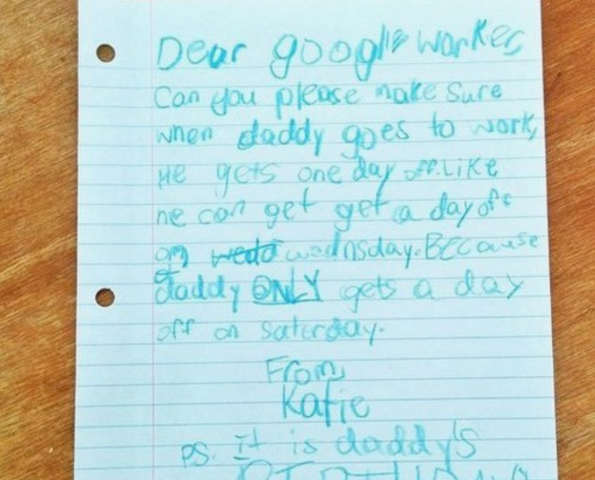 Dear google worker,
Can you please make sure
when daddy goes to work,
He gets one day off. Like
he can get get a day off
on wedo wednsday. Because
daddy ONLY gets a day
off on saturday.
From,
Katie
PS. It is daddy's
BIRTHDAY